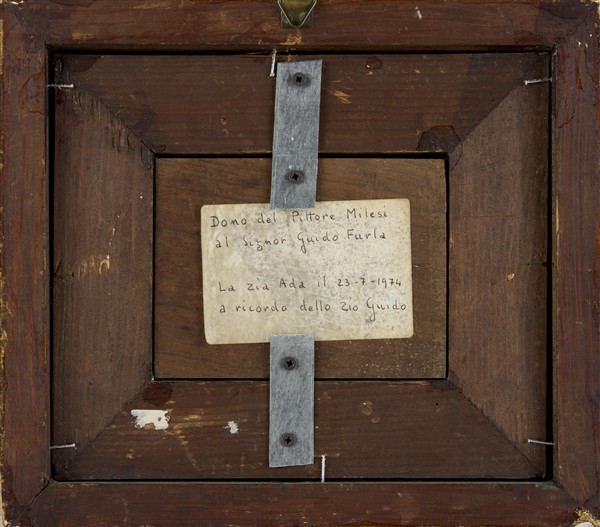 Dono del Pittore Milesi
al Signor Guido Furla
La zia Ada il 23-7-1974
a ricordo dello Zio Guido